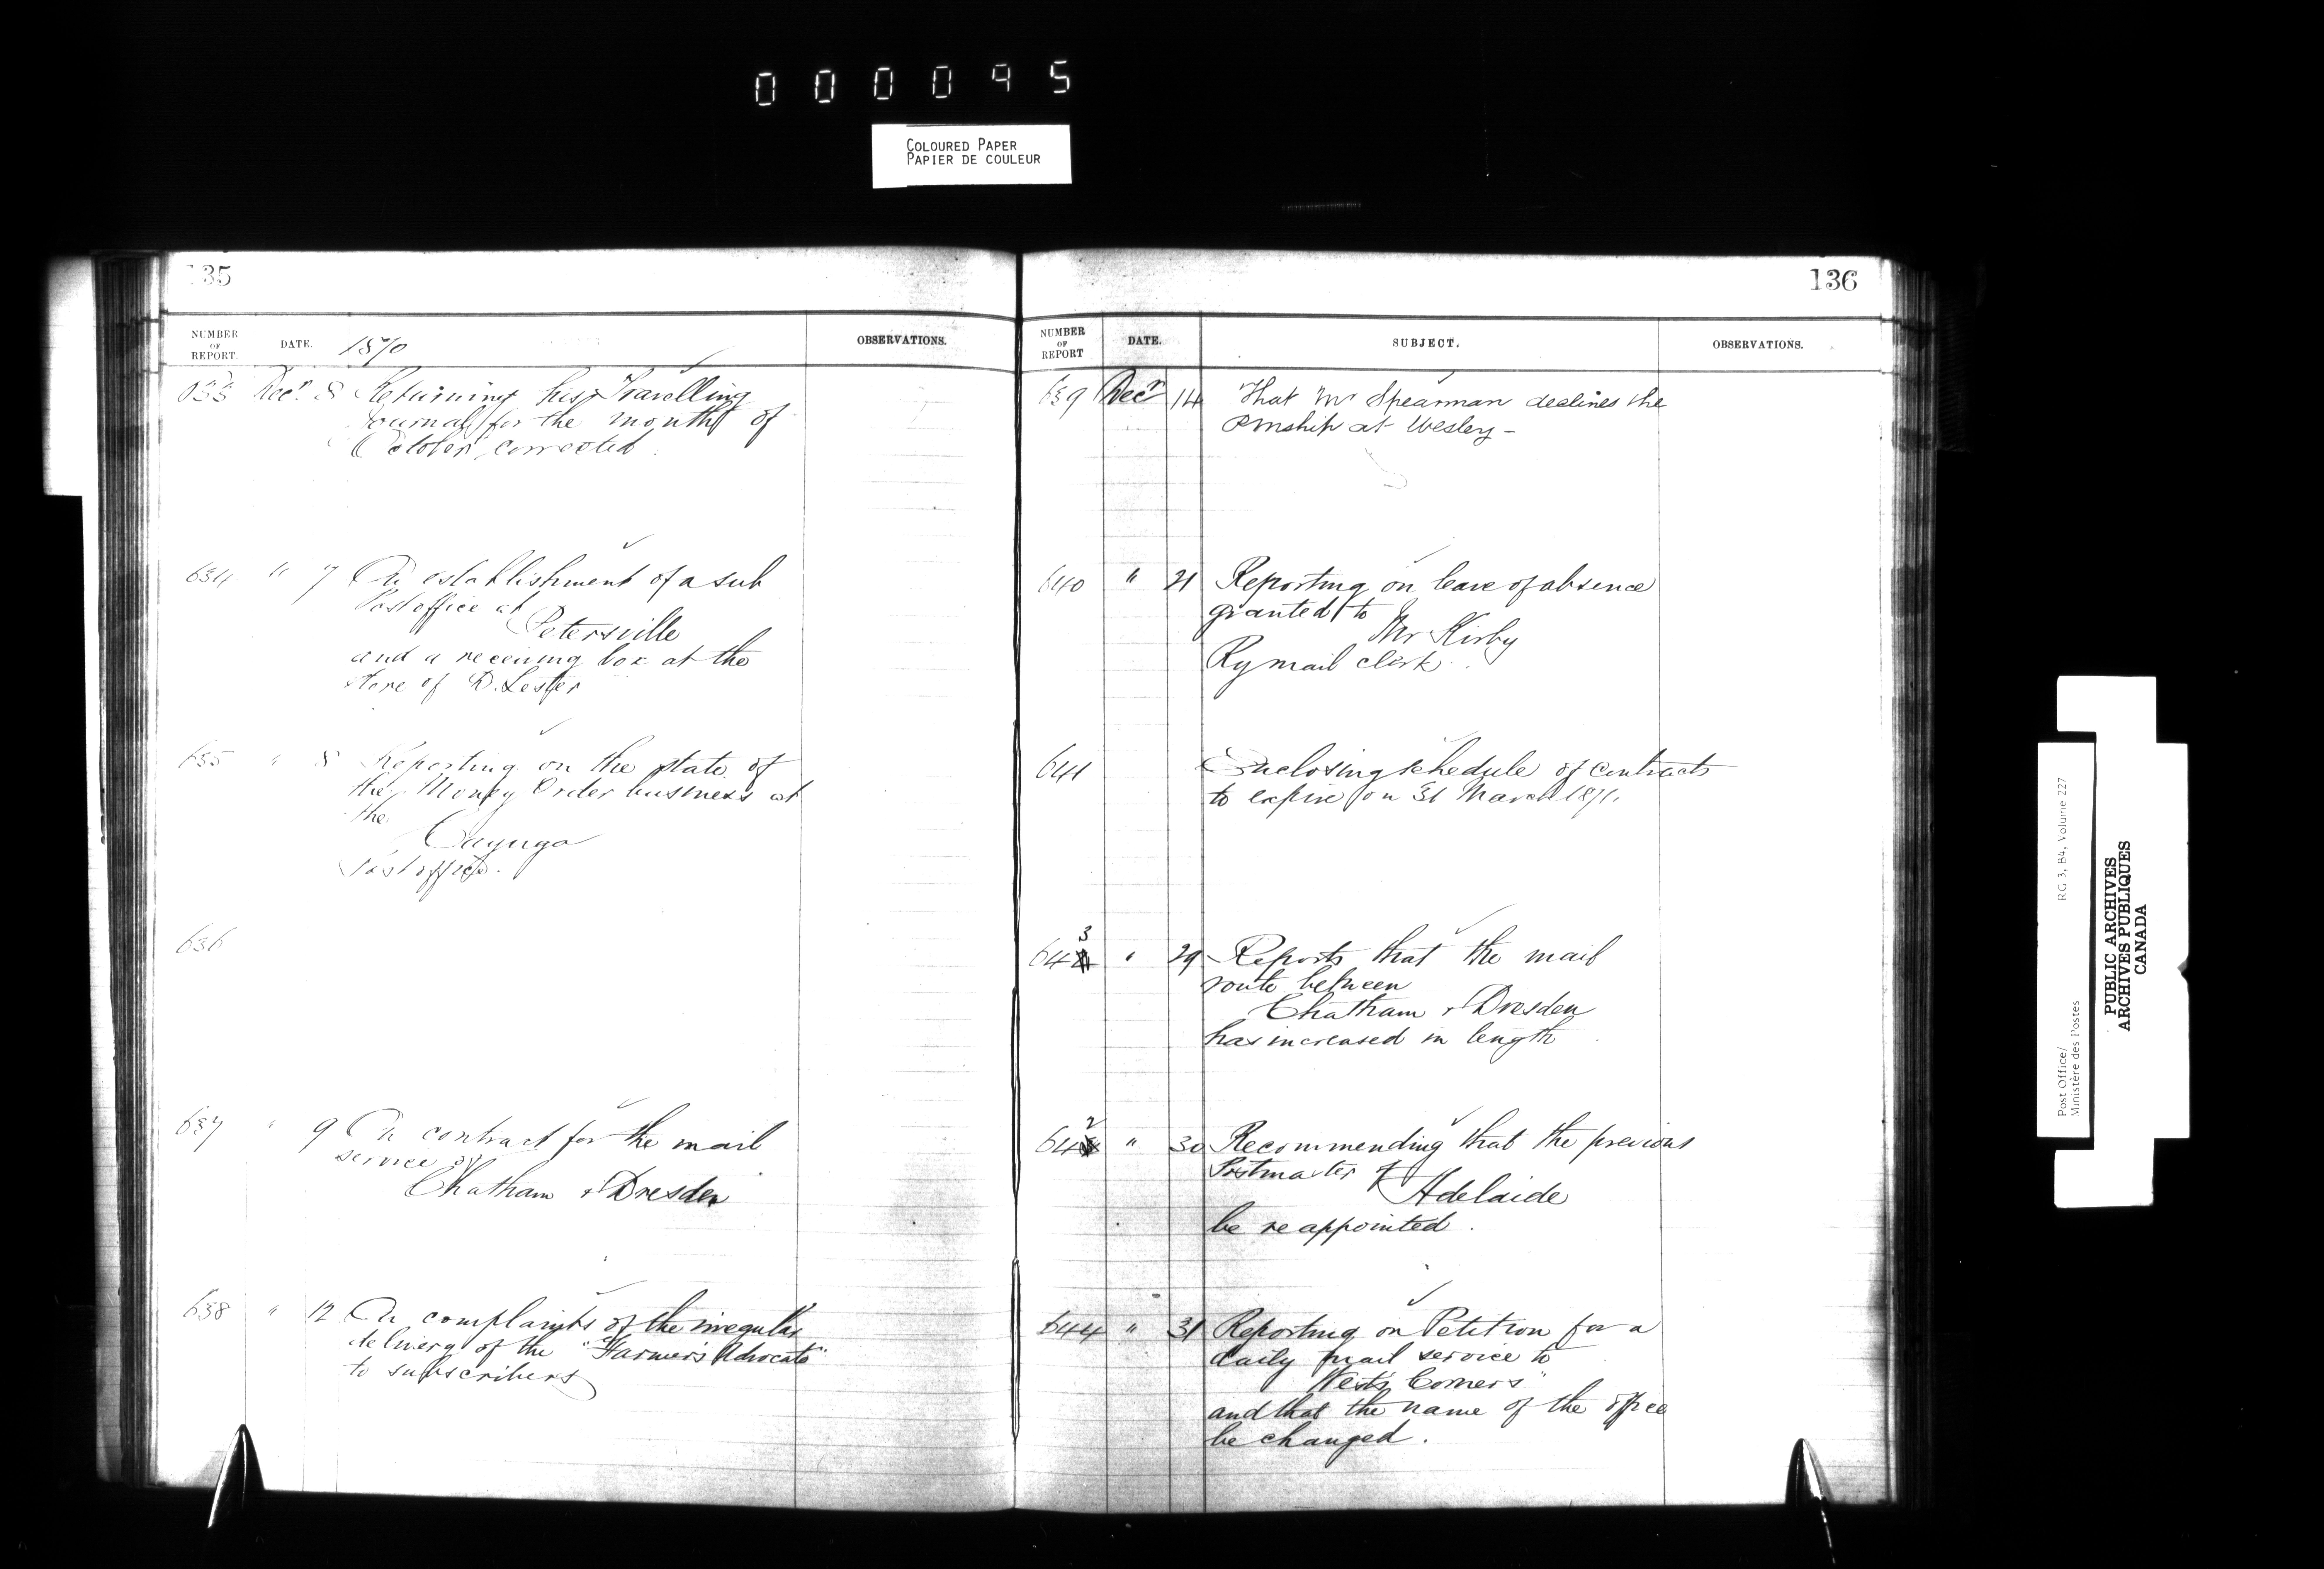 000095
COLOURED PAPER
PAPIER DE COULEUR
135
NUMBER OF REPORT. DATE. 1870 OBSERVATIONS.
633 Decr. 8 Returning his Travelling
Journal for the month of
October corrected.
634 " 7 On establishment of a sub
Post office at
Petersville
and a receiving box at the
store of D. Lester
635 " 8 Reporting on the state of
the Money Order business at
the
Cayuga
Post office.
636
637 " 9 On contract for the mail
service on
Chatham & Dresden
638 " 12 On complaints of the irregular
delivery of the "Farmer's Advocate"
to subscribers
136
NUMBER OF REPORT DATE. SUBJECT. OBSERVATIONS.
639 Decr 14 That Mr Spearman declines the
Pmship at Wesley -
640 " 21 Reporting on leave of absence
granted to
Mr Kirby
Ry mail clerk.
641 Enclosing schedule of contracts
to expire on 31 March 1871.
643 " 29 Reports that the mail
route between
Chatham & Dresden
has increased in length
642 " 30 Recommending that the previous
Postmaster of
Adelaide
be reappointed.
644 " 31 Reporting on Petition for a
daily mail service to
"West's Corners"
and that the name of the office
be changed.
Post Office/ RG 3, B4, Volume 227
Ministère des Postes
PUBLIC ARCHIVES
ARCHIVES PUBLIQUES
CANADA